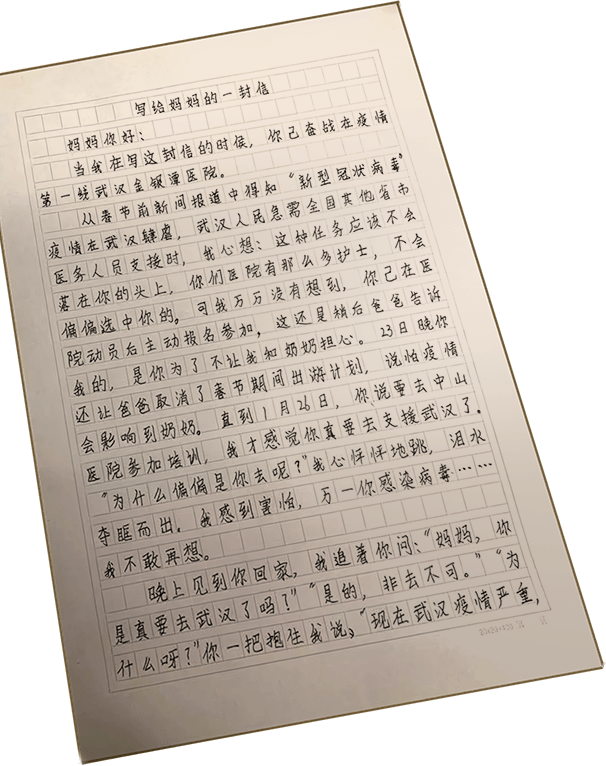 写给妈妈的一封信
妈妈你好：
当我在写这封信的时候，你已奋战在疫情
第一线武汉金银潭医院。
从春节前新闻报道中得知“新型冠状病毒”
疫情在武汉肆虐，武汉人民急需全国其他省市
医务人员支援时，我心想：这种任务应该不会
落在你的头上，你们医院有那么多护士，不会
偏偏选中你的。可我万万没有想到，你已在医
院动员后主动报名参加，这还是稍后爸爸告诉
我的，是你为了不让我和奶奶担心。23日晚你
还让爸爸取消了春节期间出游计划，说怕疫情
会影响到奶奶。直到1月26日，你说要去中山
医院参加培训，我才感觉你真要去支援武汉了。
“为什么偏偏是你去呢？”我心怦怦地跳，泪水
夺眶而出。我感到害怕，万一你感染病毒……
我不敢再想。
晚上见到你回家，我追着你问：“妈妈，你
是真要去武汉了吗？”“是的，非去不可。”“为
什么呀？”你一把抱住我说：“现在武汉疫情严重，